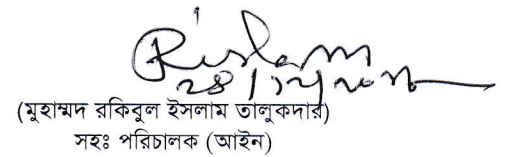 Rislam
২৪/১২/২০১৮
(মুহাম্মদ রকিবুল ইসলাম তালুকদার)
সহঃ পরিচালক (আইন)